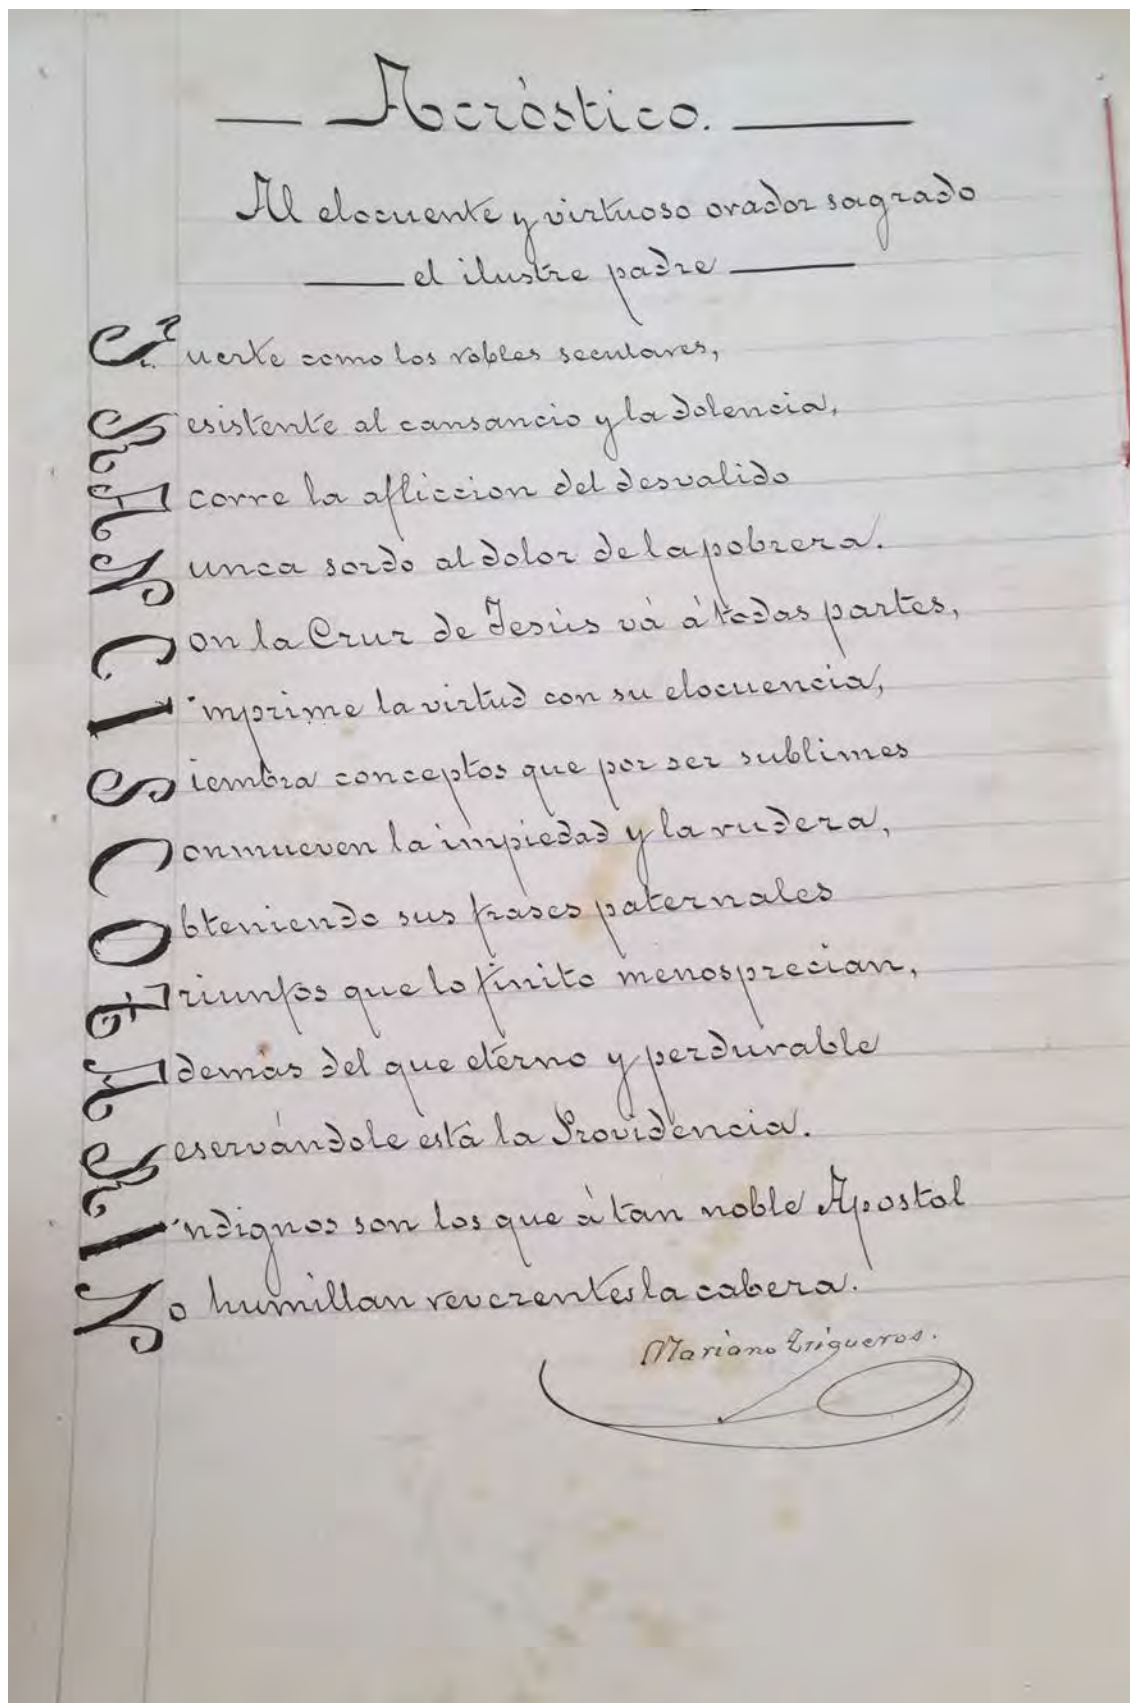 Acróstico.
Al elocuente y virtuoso orador sagrado
el ilustre padre
Fuerte como los robles seculares,
Resistente al cansancio y la dolencia,
Acorre la afliccion del desvalido
Nunca sordo al dolor de la pobreza.
Con la Cruz de Jesús vá á todas partes,
Imprime la virtud con su elocuencia,
Siembra conceptos que por ser sublimes
Conmueven la impiedad y la rudeza,
Obteniendo sus frases paternales
Triunfos que lo finito menosprecian,
Además del que eterno y perdurable
Reservándole está la Providencia.
Indignos son los que á tan noble Apostol
No humillan reverentes la cabeza.
Mariano Trigueros.